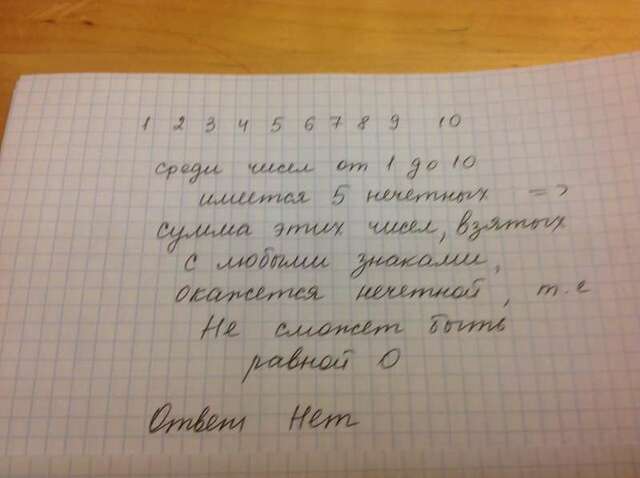 1 2 3 4 5 6 7 8 9 10
среди чисел от 1 до 10
имеется 5 нечетных =>
сумма этих чисел, взятых
с любыми знаками,
окажется нечетной, т.е
не сможет быть
равной 0
Ответ Нет